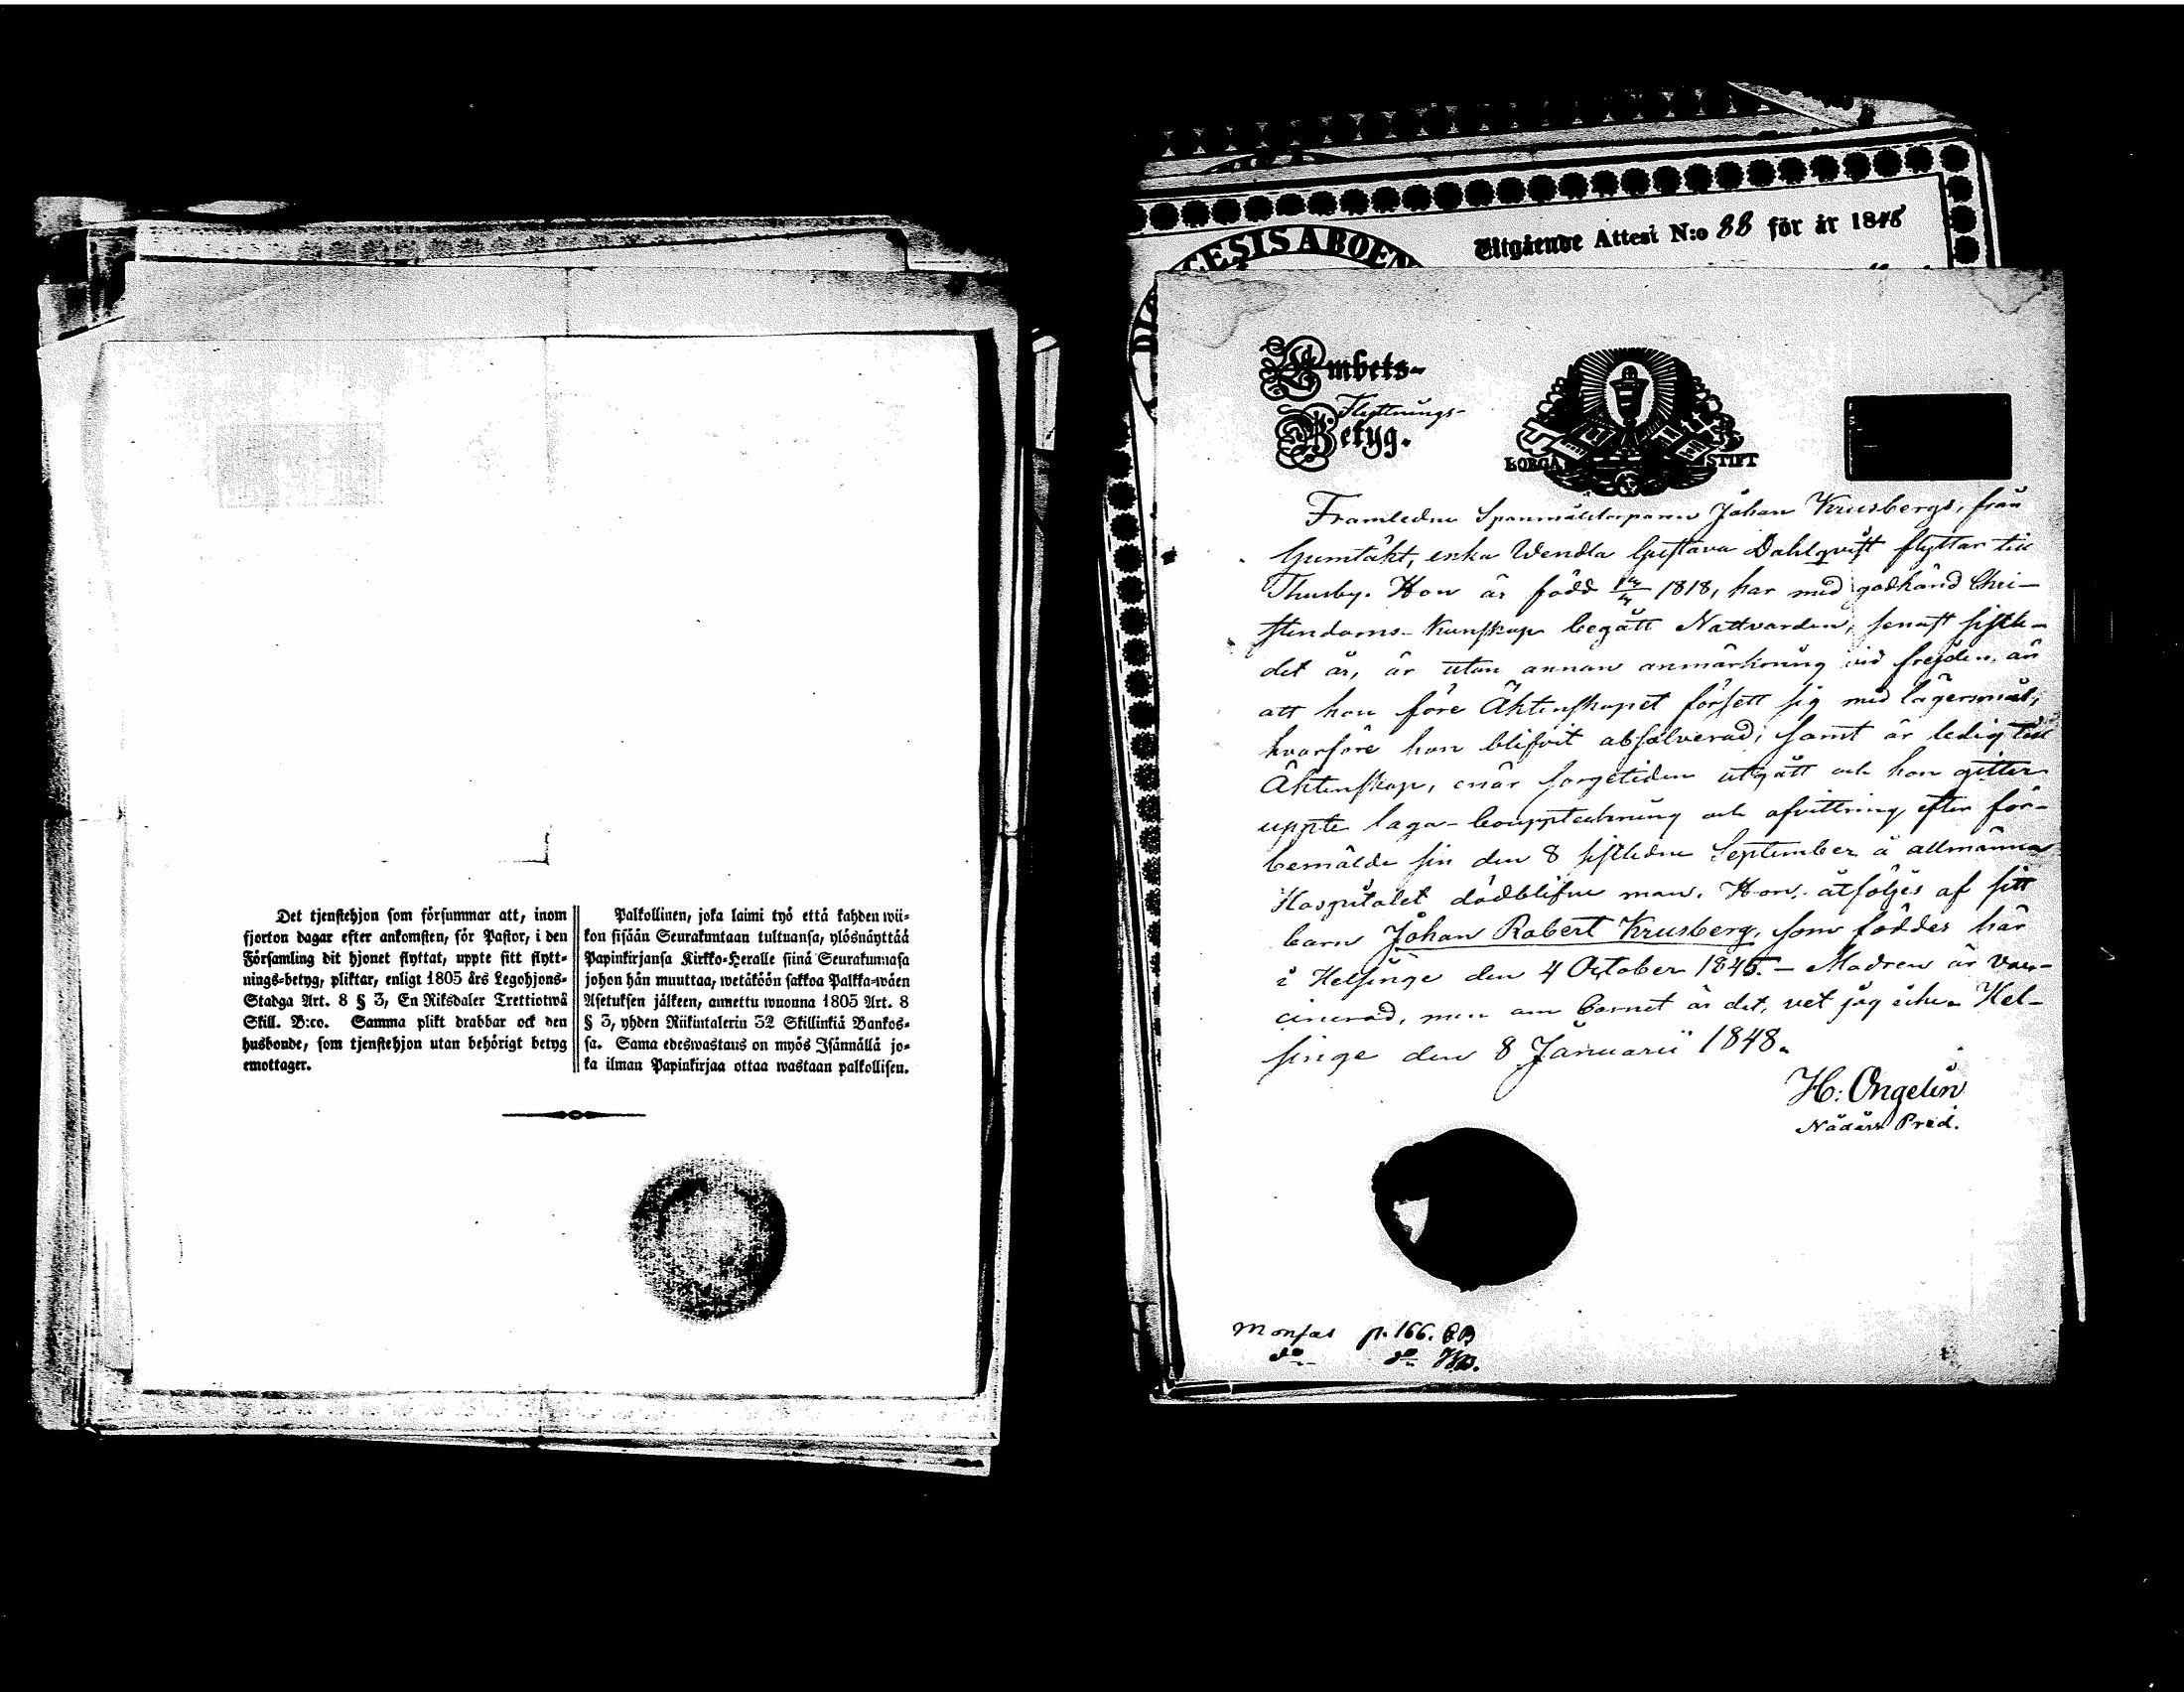 Det tjenstehjon som försummar att, inom
fjorton dagar efter ankomsten, för Pastor, i den
Församling dit hjonet flyttat, uppte sitt flytt-
nings-betyg, pliktar, enligt 1805 års Legohjons-
Stadga Art. 8 § 3, En Riksdaler Trettiotwå
Skill. B:co. Samma plikt drabbar ock den
husbonde, som tjenstehjon utan behörigt betyg
emottager.
Palkollinen, joka laimi työ että kahden wii-
kon sisään Seurakuntaan tultuansa, ylösnäyttää
Papinkirjansa Kirkko-Heralle siinä Seurakunnasa
johon hän muuttaa, wetäköön sakkoa Palkka-wäen
Asetuksen jälkeen, annettu wuonna 1805 Art. 8
§ 3, yhden Riikintalerin 32 Skillinkiä Bankos-
sa. Sama edeswastaus on myös Isännällä jo-
ka ilman Papinkirjaa ottaa wastaan palkollisen.
DIOECESIS ABOEN
Utgående Attest N:o 88 för år 1848
Embets-
Flyttnings-
Betyg.
BORGÅ STIFT
Framledne Johan Krusbergs, från
Gumtäkt, enka Wendla Gustava Dahlqvist flyttar till
Thusby. Hon är född 1818, har med godkänd Chri-
stendoms-kunskap begått Nattvarden, senast sistle-
det år, är utan annan anmärkning vid frejden, än
att hon före Äktenskapet försett sig med lägersmål,
hvarföre hon blifvit absolverad; samt är ledig till
Äktenskap, när sorgetiden utgått och hon gitter
uppte laga bouppteckning och afvittring efter för-
bemälde sin den 8 sistledne September å allmänna
Hospitalet dödblifne man. Hon åtföljes af sitt
barn Johan Robert Krusberg, som föddes här
i Helsinge den 4 October 1845. – Modren är vac-
cinerad, men om barnet är det, vet jag icke. Hel-
singe den 8 Januarii 1848.
H: Ongelin
Nådårs Pred.
Monsas p. 166. CB
do do HB.